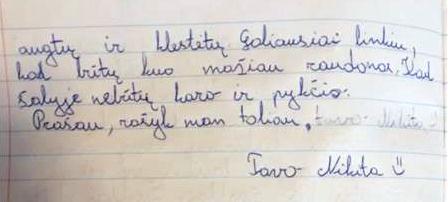 augtų ir klestėtų. Galiausiai linkiu,
kad būtų kuo mažiau raudonos. Kad
šalyje nebūtų karo ir pykčio.
Prašau, rašyk man toliau, tavo Nikita
Tavo Nikita ü